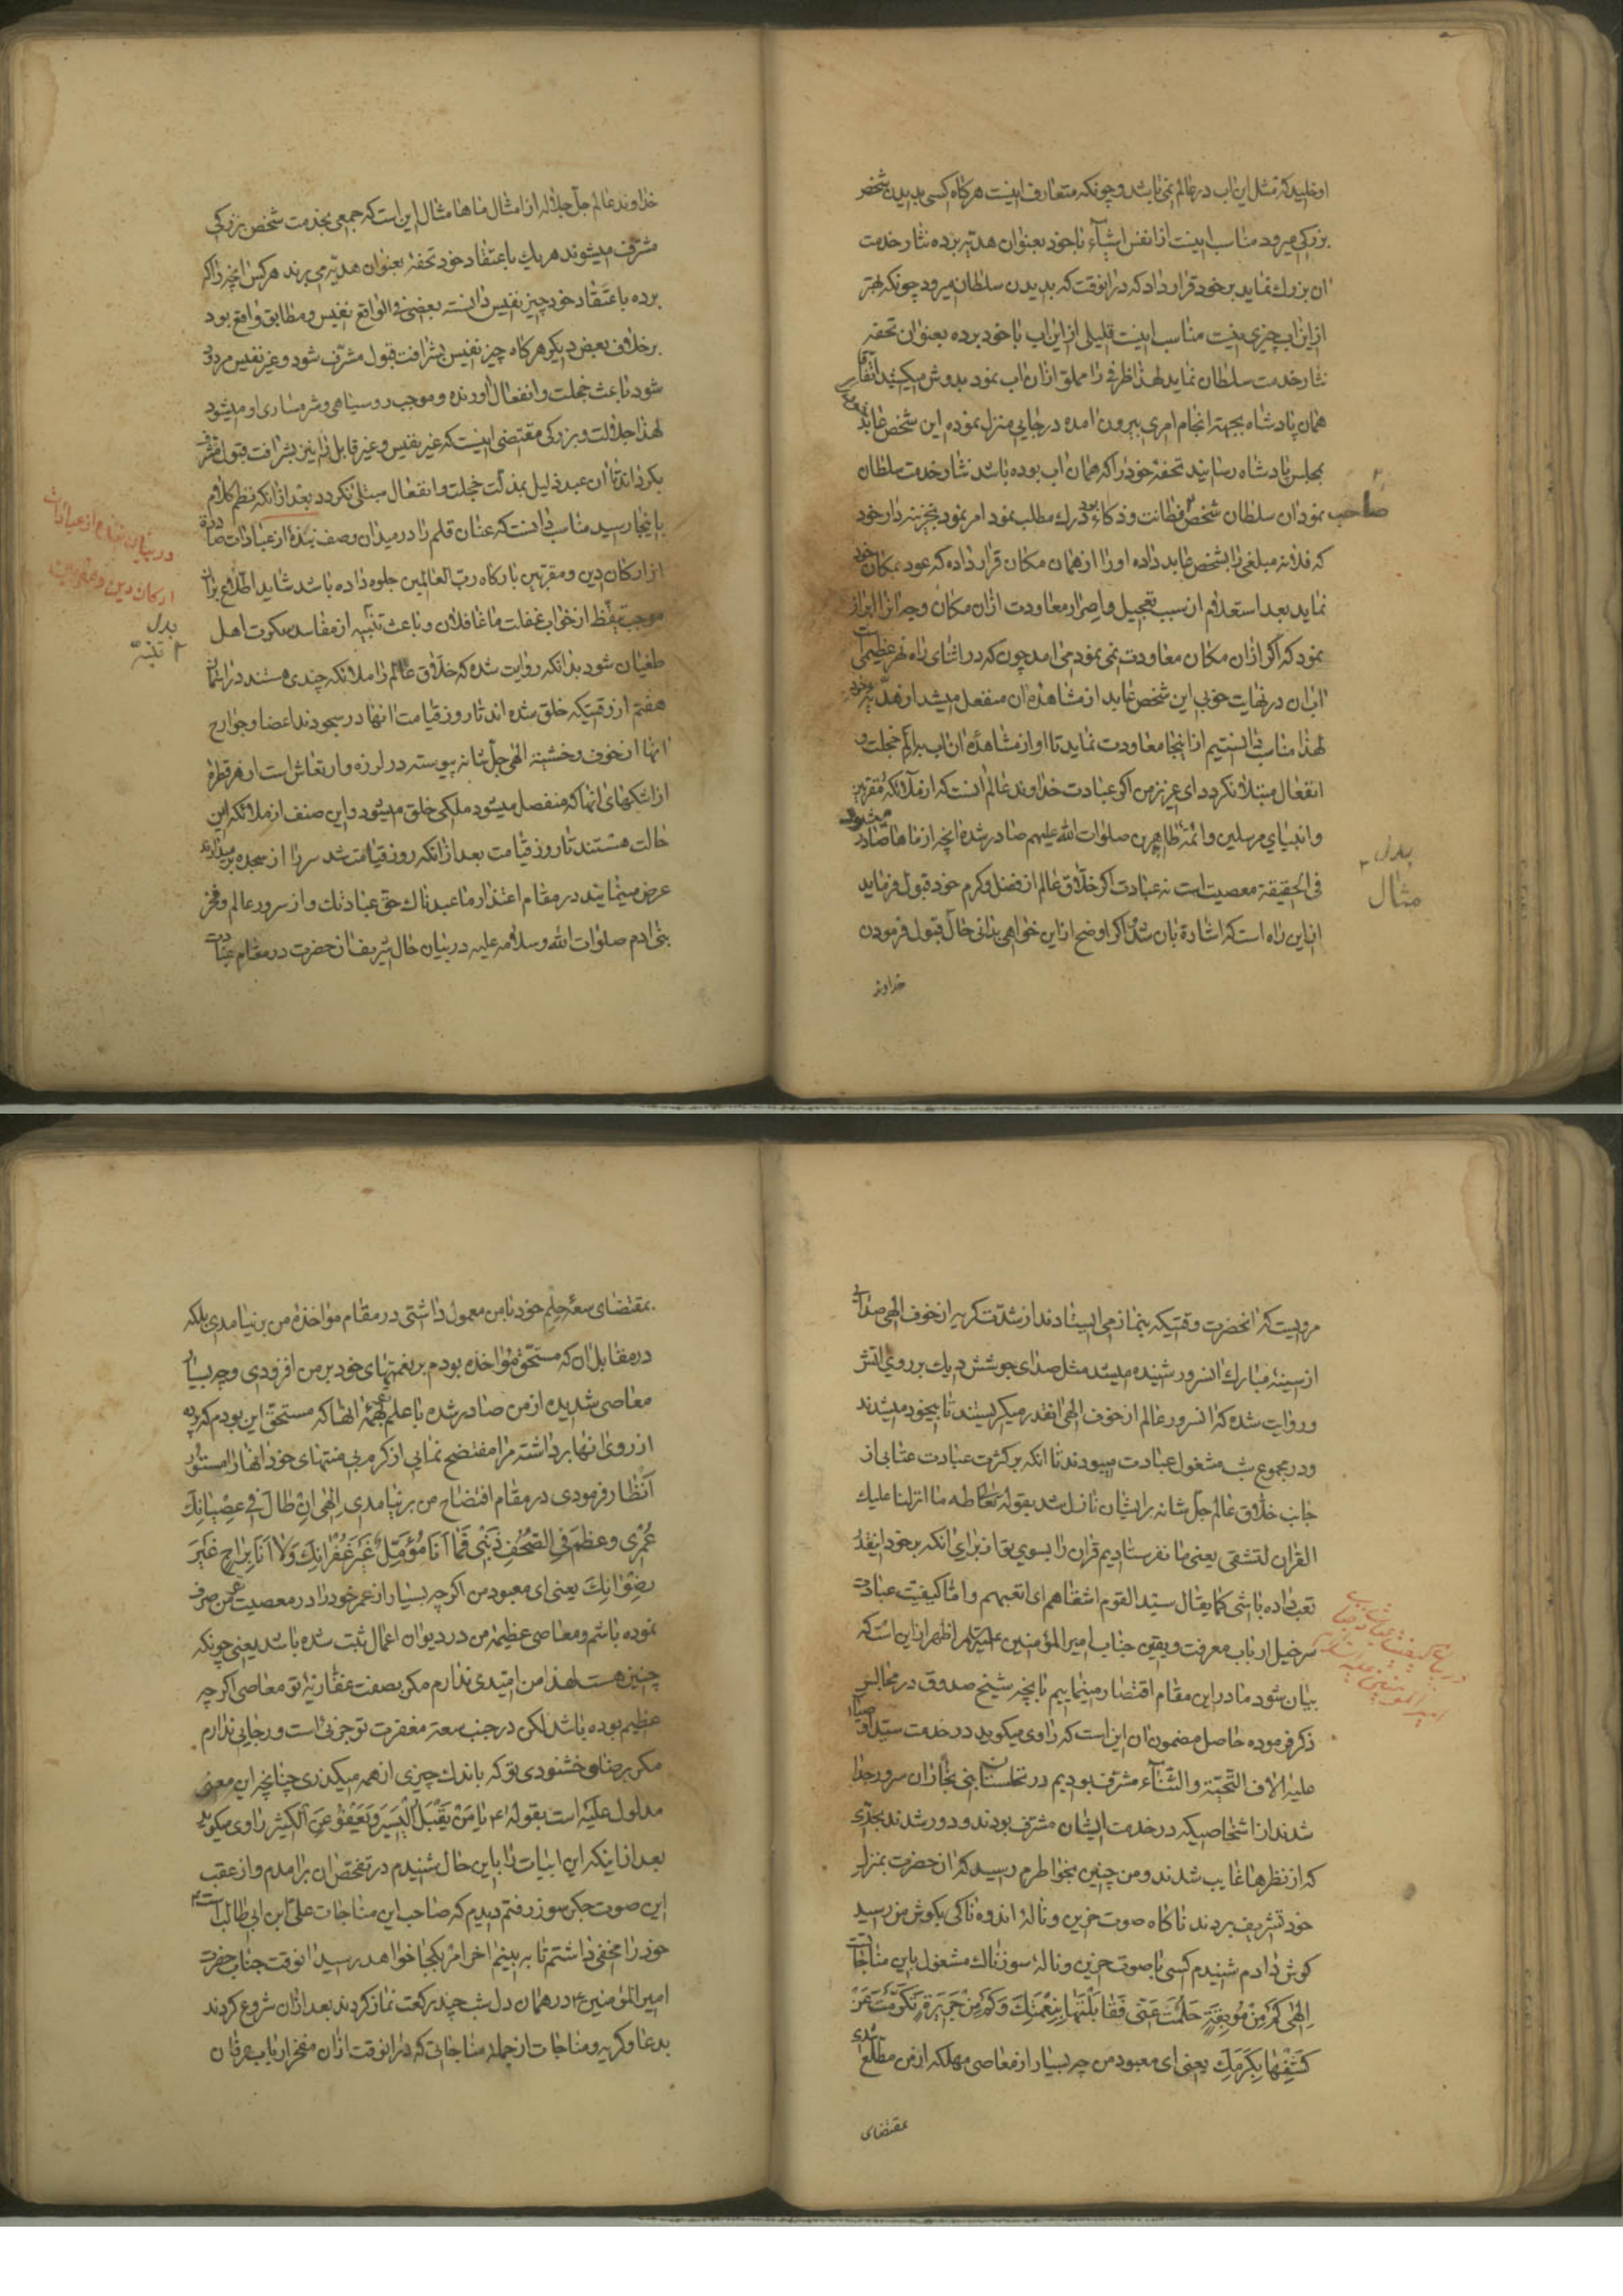 او خلید که مثل این اب در عالم نمی باشد و چونکه متعارف اینست هرکاه کسی بدیدن شخص
بزرکی میرود مناسب اینست از انفس اشیآء با خود بعنوان هدیّه برده نثار خدمت
ان بزرك نماید بر خود قرار داد که در انوقت که بدیدن سلطان میرود چونکه بهتر
از این اب چیزی نیست مناسب اینست قلیلی از این اب با خود برده بعنوان تحفه
نثار خدمت سلطان نماید لهذا ظرفی را مملو از ان اب نمود بدوش میکشید اتّفاقا
همان پادشاه بجهته انجام امری بیرون امده در جایی منزل نموده این شخص عابد
بمجلس پادشاه رسانید تحفهٔ خود را که همان اب بوده باشد نثار خدمت سلطان
نمود ان سلطان شخص فطانت و ذکاء بود درك مطلب نمود امر نمود بخزینه دار خود
صاحب
که فلانه مبلغی را بشخص عابد داده او را از همان مکان قرار داده که عود بمکان خود
نماید بعد استعلام از سبب تعجیل و اصرار معاودت ازان مکان وجه انرا ابراز
نمود که اکر ازان مکان معاودت نمی نمود می امد چون که در اثنای راه نهر عظیمی است
اب ان در نهایت خوبی این شخص عابد از مشاهدهٔ ان منفعل میشد از هدیّه خود
لهذا مناسب دانستیم از اینجا معاودت نماید تا او از مشاهدهٔ ان اب بر الم خجلت و
انفعال مبتلا نکردد ای عزیز من اکر عبادت خداوند عالم انست که از ملآئکه مقرّبین
و انبیای مرسلین و ائمّهٔ طاهرین صلوات الله علیهم صادر شده انچه از ماها صادر میشود
فی الحقیقه معصیت است نه عبادت اکر خلّاق عالم از فضل و کرم خود قبول فرماید
بدل
مثال
از این راه است که اشاره بان شد و اکر اوضح از این خواهی بدانی حال قبول فرمودن
خداوند
خداوند عالم جلّ جلاله از امثال ماها مثال این است که جمعی بخدمت شخص بزرکی
مشرّف میشوند هر یك باعتقاد خود تحفهٔ بعنوان هدیّه می برند هر کس انچه را که
برده باعتقاد خود چیز نفیس دانسته بعضی فی الواقع نفیس و مطابق واقع بود
بر خلاف بعض دیکر هرکاه چیز نفیس بشرافت قبول مشرّف شود و غیر نفیس مردود
شود باعث خجلت و انفعال اورنده و موجب روسیاهی و شرمساری او میشود
لهذا جلالت و بزرکی مقتضی اینست که غیر نفیس و غیر قابل را نیز بشرافت قبول مشرّف
بکرداند تا ان عبد ذلیل بمذلّت خجلت و انفعال مبتلی نکردد بعد از انکه نظم کلام
باینجا رسید مناسب دانست که عنان قلم را در میدان وصف نبذهٔ از عبادات صادره
از ارکان دین و مقرّبین بارکاه ربّ العالمین جلوه داده باشد شاید اطّلاع بران
در بیان نبذهٔ از عبادات
ارکان دین و مقربین
موجب تیقّظ از خواب غفلت ما غافلان و باعث تنبیه از مفاسد سکرت اهل
بدل
تنبّه
طغیان شود بدانکه روایت شده که خلّاق عالم را ملائکه چندی هستند در اسمان
هفتم از وقتیکه خلق شده اند تا روز قیامت انها در سجودند اعضا و جوارح
انها از خوف و خشیّهٔ الهی جلّ شانه پیوسته در لرزه و ارتعاش است از هر قطرهٔ
از اشکهای انها که منفصل میشود ملکی خلق میشود و این صنف از ملائکه این
حالت هستند تا روز قیامت بعد از انکه روز قیامت شد سر را از سجده برمیدارند
عرض مینمایند در مقام اعتذار ما عبدناك حقّ عبادتك و از سرور عالم و فخر
بنی ادم صلوات الله و سلامه علیه در بیان حال شریف ان حضرت در مقام عبادت
مرویست که انحضرت وقتیکه بنماز می ایستادند از شدّت کریه از خوف الهی صدائی
از سینهٔ مبارك انسرور شنیده میشد مثل صدای جوشش دیك بر روی اتش
و روایت شده که انسرور عالم از خوف الهی انقدر میکریستند تا بیخود میشدند
و در مجموع شب مشغول عبادت میبودند تا انکه بر کثرت عبادت عتابی از
جانب خلّاق عالم جلّ شانه بر ایشان نازل شد بقوله تعالی طه ما انزلنا علیك
القران لتشقی یعنی ما نفرستادیم قران را بسوی تو از برای انکه بر خود اینقدر
تعب داده باشی کما یقال سیّد القوم اشقاهم ای اتعبهم و امّا کیفیت عبادت
سرخیل ارباب معرفت و یقین جناب امیر المؤمنین علیه السلام اظهر از این است که
بیان شود ما در این مقام اقتصار مینماییم بانچه شیخ صدوق در مجالس
ذکر فرموده حاصل مضمون ان این است که راوی میکوید در خدمت سیّد اوصیا
علیه الاف التّحیّة و الثّنآء مشرّف بودیم در نخلستان بنی نجّار ان سرور جدا
شدند از اشخاصیکه در خدمت ایشان مشرّف بودند و دور شدند بحدّی
که از نظرها غایب شدند و من چنین بخاطرم رسید که ان حضرت بمنزل
خود تشریف بردند ناکاه صوت حزین و نالهٔ اندوه ناکی بکوش من رسید
کوش دادم شنیدم کسی با صوت حزین و نالهٔ سوزناك مشغول باین مناجات
اِلهی کَم مِن مُوبِقَةٍ حَلُمتَ عَنّی فَقابَلتَها بِنِعمَتِكَ وَکَم مِن جَریرَةٍ تَکَرَّمتَ عَن
کَشفِها بِکَرَمِكَ یعنی ای معبود من چه بسیار از معاصی مهلکه از من مطّلع شدی
بمقتضای
بمقتضای سعهٔ حلم خود با من معمول داشتی در مقام مواخذهٔ من بر نیامدی بلکه
در مقابل ان که مستحقّ مؤاخذه بودم بر نعمتهای خود بر من افزودی و چه بسیار
معاصی شدیده از من صادر شده با علم بهمهٔ انها که مستحقّ این بودم که پرده
از روی انها برداشته مرا مفتضح نمایی از کرم بی منتهای خود انها را مستور
انظار فرمودی در مقام افتضاح من برنیامدی اِلهی اِن طالَ فی عِصیانِكَ
عُمُری وَعَظُمَ فِی الصُّحُفِ ذَنبی فَما اَنَا مُؤَمِّلٌ غَیرَ غُفرانِكَ وَلا اَنَا بِراجٍ غَیرَ
رِضوانِكَ یعنی ای معبود من اکرچه بسیار از عمر خود را در معصیت صرف
نموده باشم و معاصی عظیمهٔ من در دیوان اعمال ثبت شده باشد یعنی چونکه
چنین هست لهذا من امّیدی ندارم مکر بصفت غفّاریّهٔ تو معاصی اکرچه
عظیم بوده باشد لکن در جنب سعهٔ مغفرت تو جزئی است و رجایی ندارم
مکر برضا و خشنودی تو که باندك چیزی از همه میکذری چنانچه این معنی
مدلول علیه است بقوله ۴ یا مَن یَقبَلُ الیَسیرَ وَیَعفو عَنِ الکَثیرِ راوی میکوید
بعد از اینکه این ابیات را باین حال شنیدم در تفحّص ان برامدم و از عقب
این صوت جکر سوز رفتم دیدم که صاحب این مناجات علیّ ابن ابی طالب است
خود را مخفی داشتم تا به بینم اخر امر بکجا خواهد رسید انوقت جناب حضرت
امیر المؤمنین ۴ در همان دل شب چند رکعت نماز کردند بعد ازان شروع کردند
بدعا و کریه و مناجات از جمله مناجاتی که در انوقت ازان مفخر ارباب عرفان